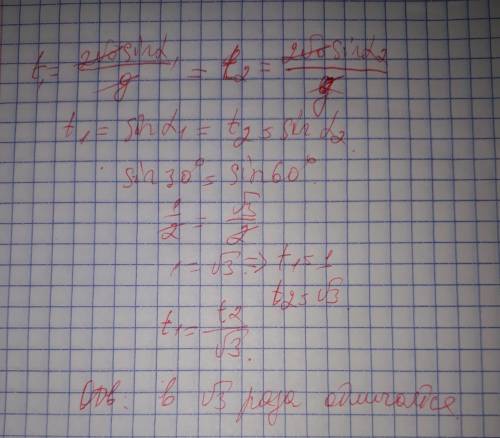 t₁ = 2v₀sinα₁/g = t₂ = 2v₀sinα₂/g
t₁ = sinα₁ = t₂ = sinα₂
sin30° = sin60°
1/2 = √3/2
1 = √3 => t₁ = 1
t₂ = √3
t₁ = t₂/√3.
Отв: в √3 раза отличается